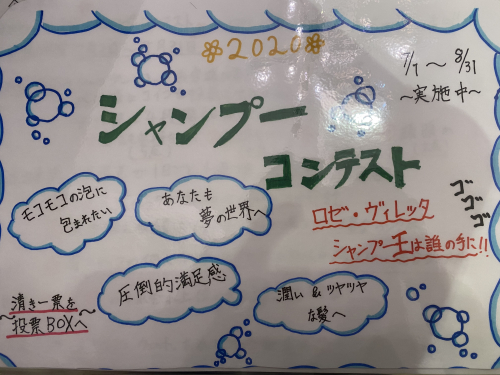 ❀2020❀
7/1 〜 8/31
〜実施中〜
シャンプー
コンテスト
モコモコの泡に
包まれたい
あなたも
夢の世界へ
ロゼ・ヴィレッタ
シャンプー王は誰の手に!!
ゴゴゴ
圧倒的満足感
潤い & ツヤツヤ
な髪へ
清き一票を
投票BOXへ